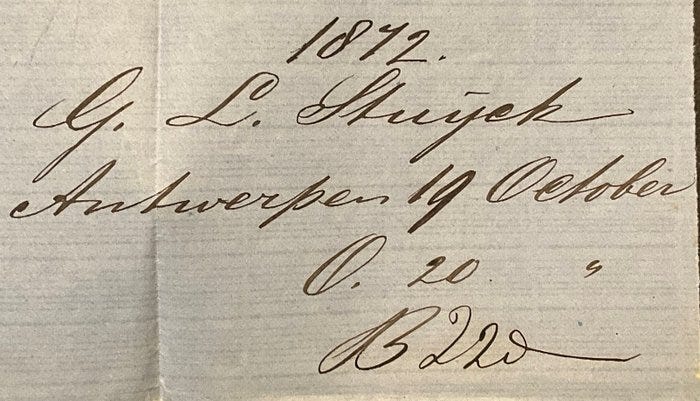 1872.
G. L. Stuyck
Antwerpen 19 October
O. 20 "
B 22d